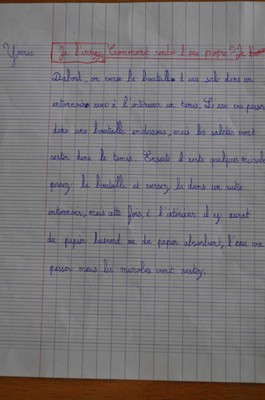 Je Comment rendre l'eau propre? Je
D'abord, on verse la bouteille d'eau sale dans un
entonnoire avec à l'intérieur un tamis. L'eau va passer
dans une bouteille en dessous, mais les saletés vont
rester dans le tamis. Ensuite il reste quelques microbes
prenez la bouteille et versez la dans un autre
entonnoir, mais cette fois, à l'intérieur il y aurat
du papier buvard ou du papier absorbant, l'eau va
passer mais les microbes vont restez.